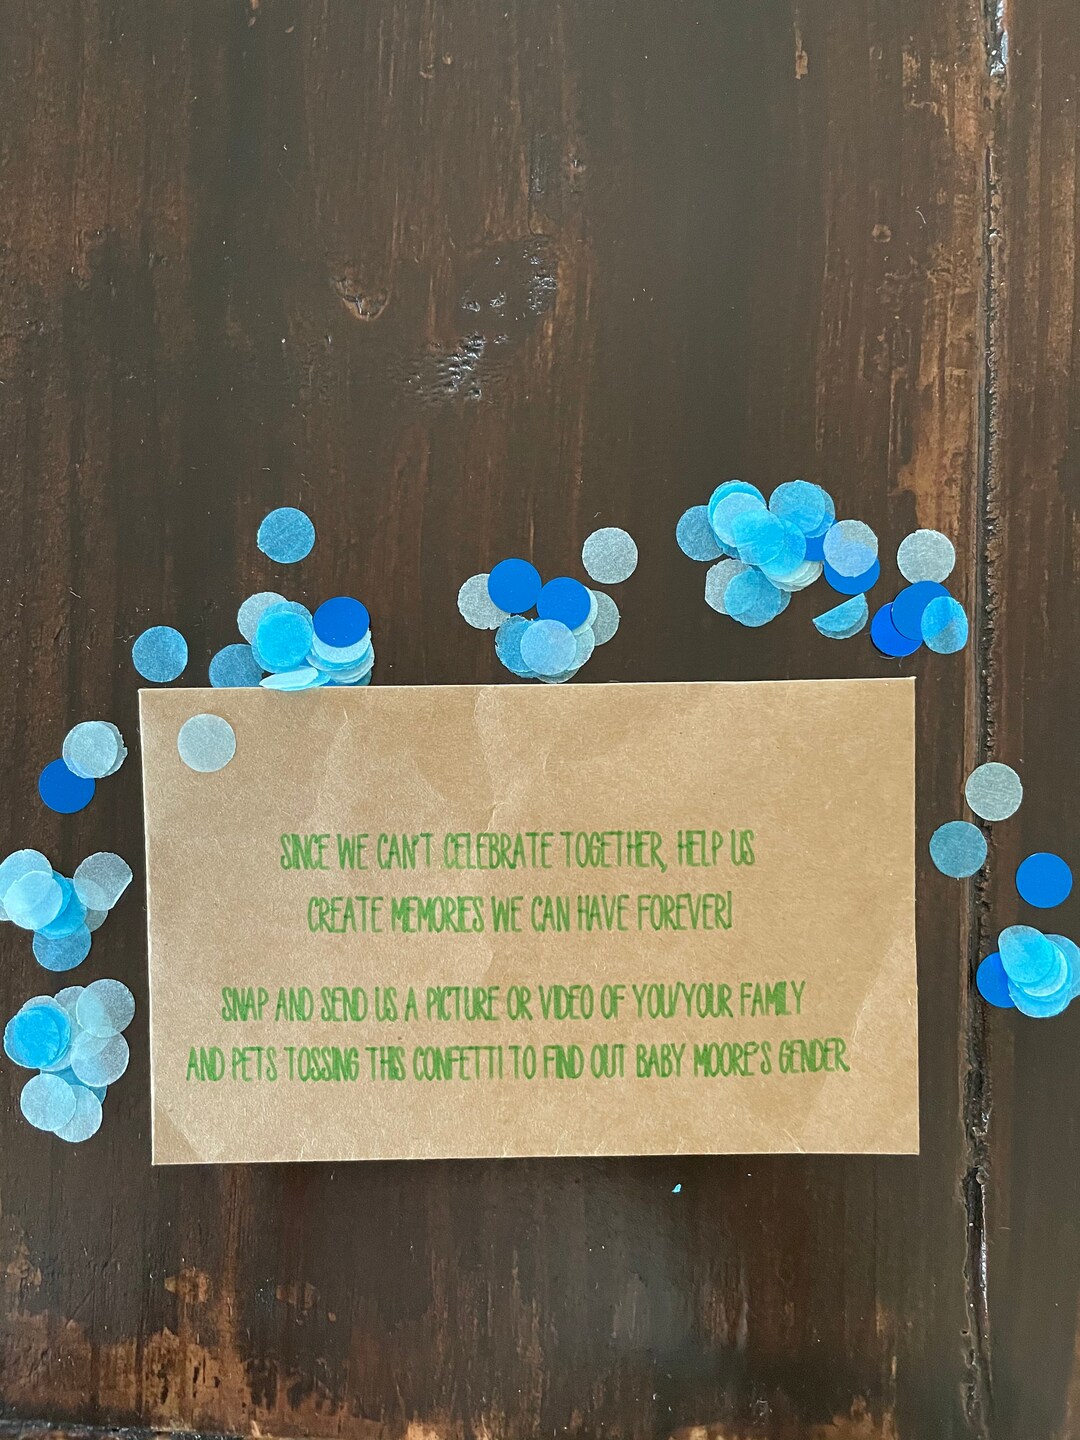 SINCE WE CAN'T CELEBRATE TOGETHER, HELP US
CREATE MEMORIES WE CAN HAVE FOREVER!
SNAP AND SEND US A PICTURE OR VIDEO OF YOU/YOUR FAMILY
AND PETS TOSSING THIS CONFETTI TO FIND OUT BABY MOORE'S GENDER.